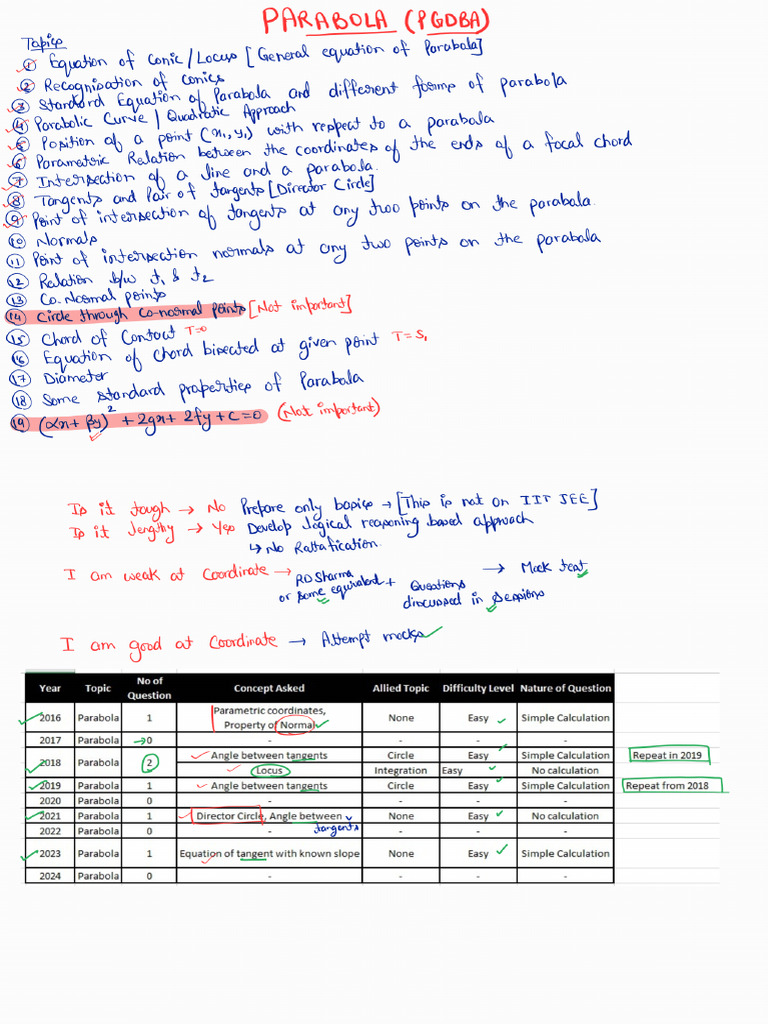 PARABOLA (PGDBA)
Topics
① Equation of Conic/Locus [General equation of Parabola]
② Recognisation of conics
③ Standard Equation of Parabola and different forms of parabola
④ Parabolic Curve / Quadratic Approach
⑤ Position of a point (x₁, y₁) with respect to a parabola
⑥ Parametric Relation between the coordinates of the ends of a focal chord
⑦ Intersection of a line and a parabola.
⑧ Tangents and Pair of tangents [Director Circle]
⑨ Point of intersection of tangents at any two points on the parabola.
⑩ Normals
⑪ Point of intersection normals at any two points on the parabola
⑫ Relation b/w t₁ & t₂
⑬ Co-Normal points
⑭ Circle through Co-normal points [Not important]
⑮ Chord of Contact T=0
⑯ Equation of Chord bisected at given point T=S₁
⑰ Diameter
⑱ Some standard properties of Parabola
⑲ (αx+βy)² + 2gx + 2fy + c = 0 (Not important)
Is it tough → No Prepare only basics → [This is not on IIT JEE]
Is it lengthy → Yes Develop logical reasoning based approach
↳ No Rattafication.
I am weak at Coordinate → RD Sharma or some equivalent + Questions discussed in sessions → Mock test
I am good at Coordinate → Attempt mocks
Year Topic No of Question Concept Asked Allied Topic Difficulty Level Nature of Question
2016 Parabola 1 Parametric coordinates, Property of Normal None Easy Simple Calculation
2017 Parabola → 0 - - - -
2018 Parabola 2 Angle between tangents Circle Easy Simple Calculation Repeat in 2019
Locus Integration Easy No calculation
2019 Parabola 1 Angle between tangents Circle Easy Simple Calculation Repeat from 2018
2020 Parabola 0 - - - -
2021 Parabola 1 Director Circle, Angle between tangents None Easy No calculation
2022 Parabola 0 - - - -
2023 Parabola 1 Equation of tangent with known slope None Easy Simple Calculation
2024 Parabola 0 - - - -